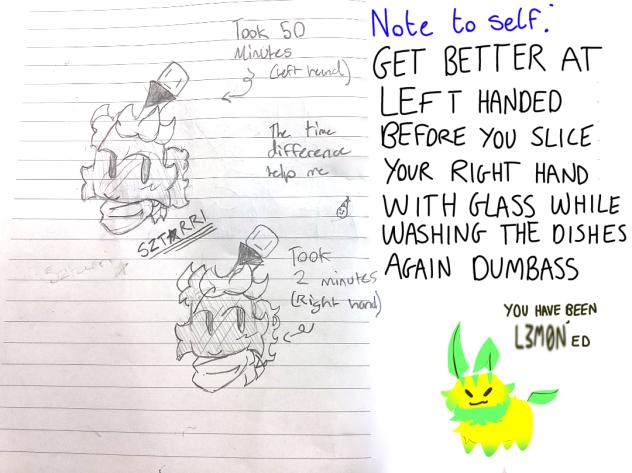 Took 50
Minutes
(left hand)
The time
difference
help me
SZT★RR!
Took
2 minutes
(Right hand)
Note to self:
GET BETTER AT
LEFT HANDED
BEFORE YOU SLICE
YOUR RIGHT HAND
WITH GLASS WHILE
WASHING THE DISHES
AGAIN DUMBASS
YOU HAVE BEEN
L3M0N'ED